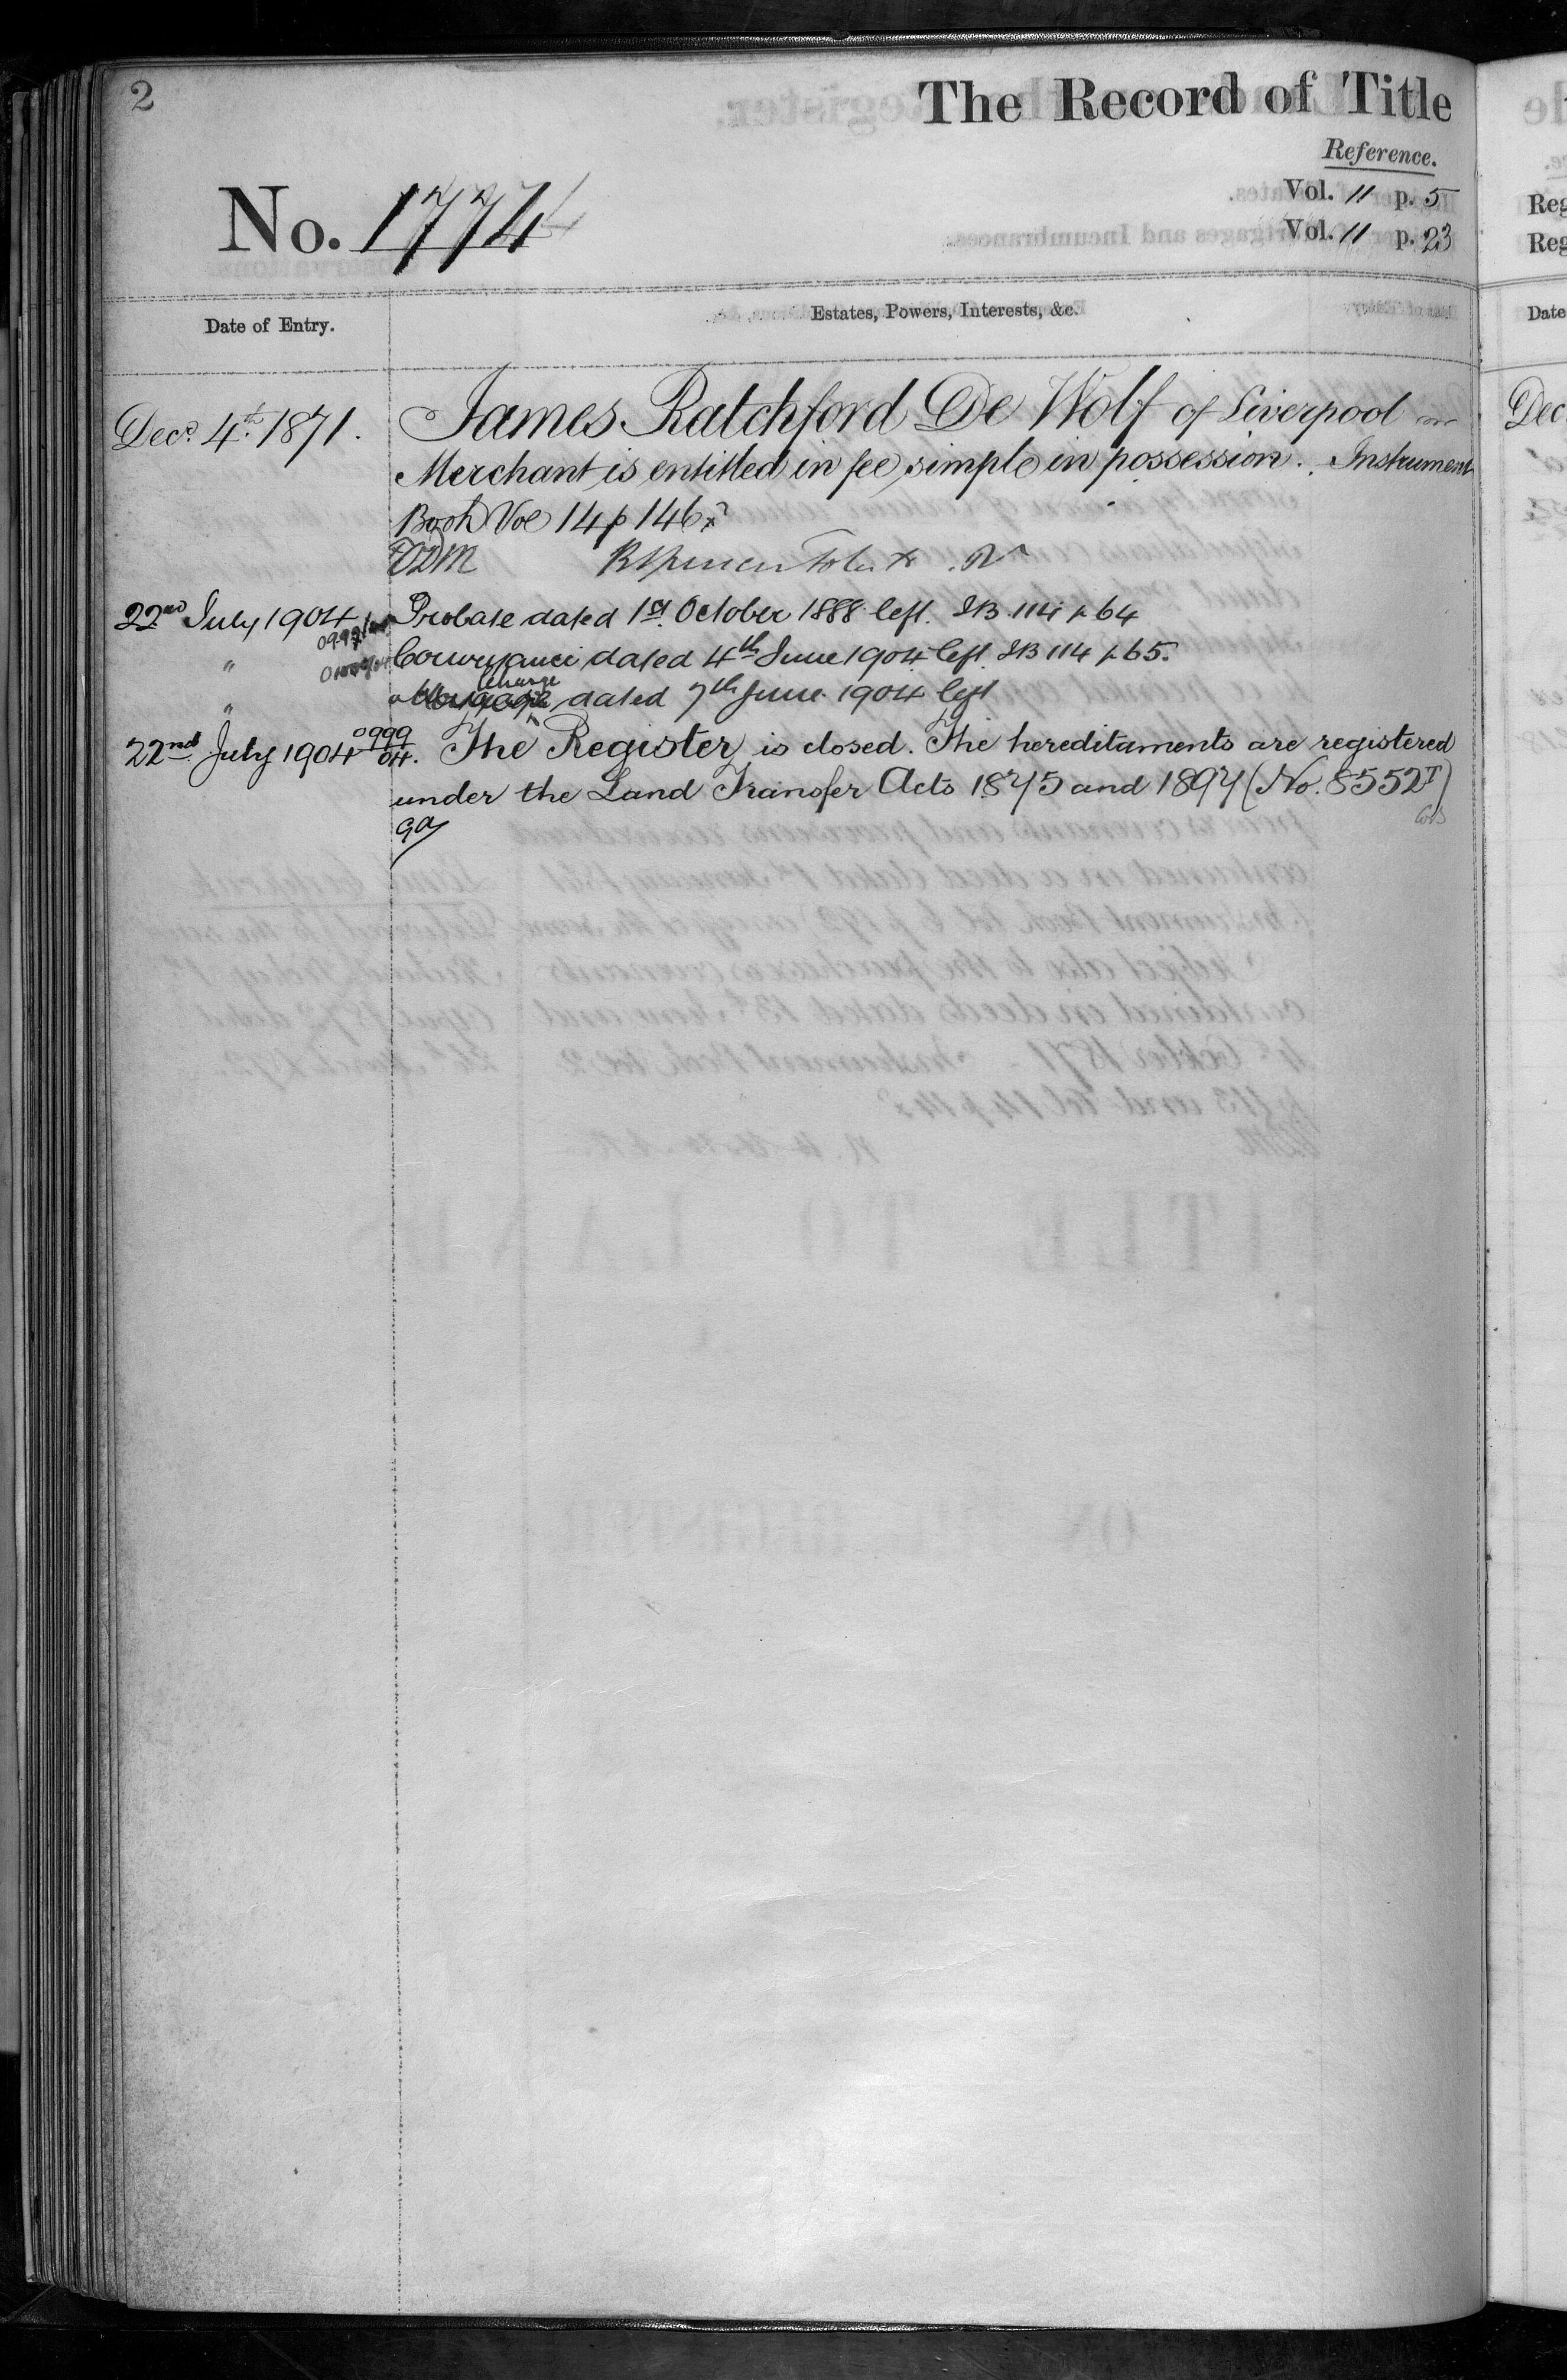 2
The Record of Title
Reference.
Vol. 11 p. 5
Vol. 11 p. 23
No. 1774
Date of Entry.
Estates, Powers, Interests, &c.
Decr. 4th 1871. James Ratchford De Wolf of Liverpool
Merchant is entitled in fee simple in possession. Instrument
Book Vol 14 p 146
22nd July 1904 Probate dated 1st October 1888 left. IB 114 p 64
" Conveyance dated 4th June 1904 left IB 114 p 65.
" Charge dated 7th June 1904 left
22nd July 1904 0999/04. The Register is closed. The hereditaments are registered
under the Land Transfer Acts 1875 and 1897 (No. 8552)
Reg
Reg
Date
Dec